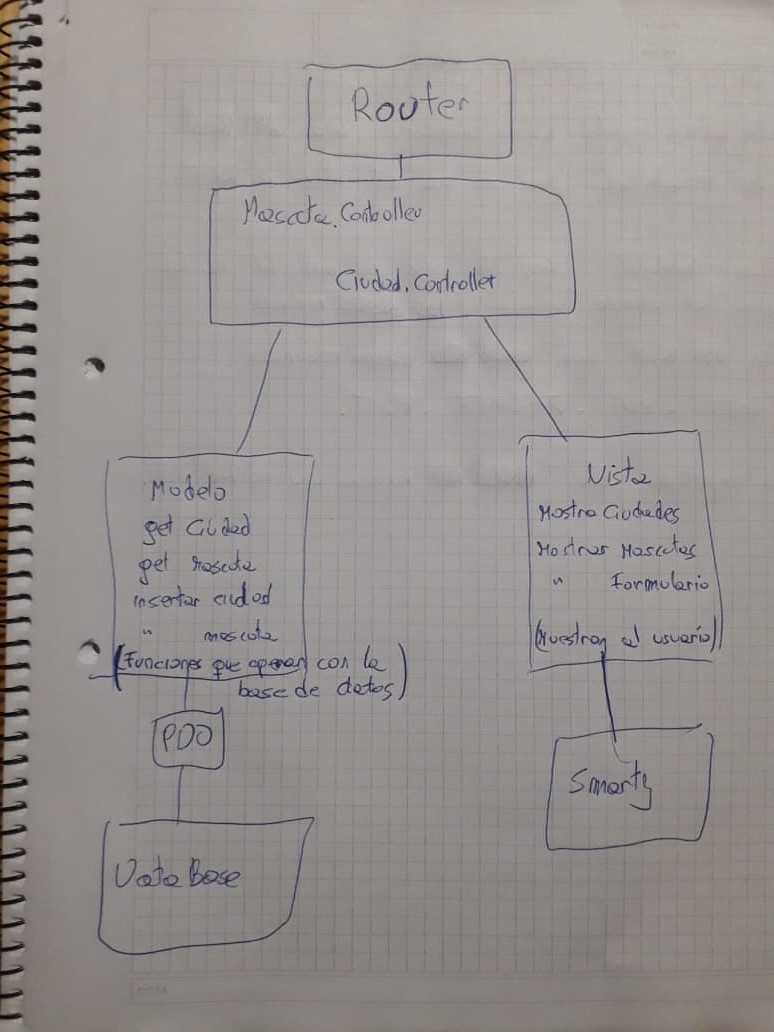 Router
Mascota.Controller
Ciudad.Controller
Modelo
get Ciudad
get mascota
insertar ciudad
" mascota
(Funciones que operan con la
base de datos)
PDO
Data Base
Vista
Mostrar Ciudades
Mostrar Mascotas
" Formulario
(Muestran al usuario)
Smarty
NOTA